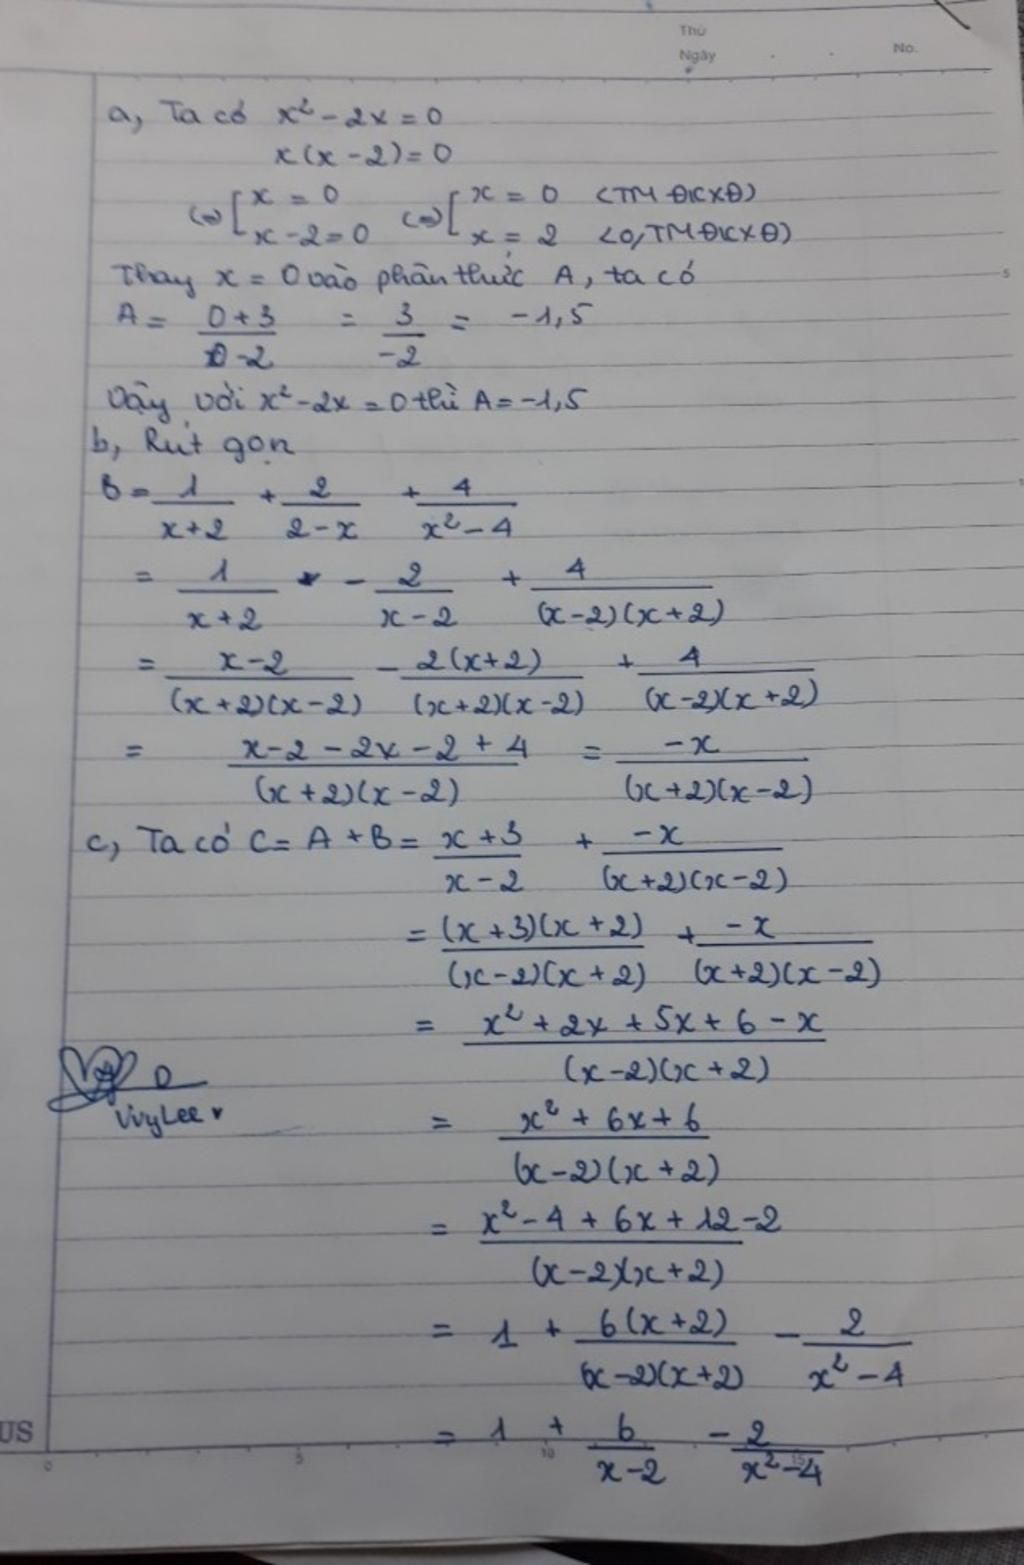 Thứ
Ngày No.
a, Ta có x² - 2x = 0
x(x - 2) = 0
(=) [ x = 0 (=) [ x = 0 (TM ĐKXĐ)
x - 2 = 0 x = 2 (0, TM ĐKXĐ)
Thay x = 0 vào phân thức A, ta có
A = (0 + 3)/(0 - 2) = 3/(-2) = -1,5
Vậy với x² - 2x = 0 thì A = -1,5
b, Rút gọn
B = 1/(x+2) + 2/(2-x) + 4/(x²-4)
= 1/(x+2) - 2/(x-2) + 4/((x-2)(x+2))
= (x-2)/((x+2)(x-2)) - 2(x+2)/((x+2)(x-2)) + 4/((x-2)(x+2))
= (x-2-2x-2+4)/((x+2)(x-2)) = -x/((x+2)(x-2))
c, Ta có C = A + B = (x+3)/(x-2) + -x/((x+2)(x-2))
= (x+3)(x+2)/((x-2)(x+2)) + -x/((x+2)(x-2))
= (x²+2x+5x+6-x)/((x-2)(x+2))
VivyLee
= (x²+6x+6)/((x-2)(x+2))
= (x²-4+6x+12-2)/((x-2)(x+2))
= 1 + 6(x+2)/((x-2)(x+2)) - 2/(x²-4)
= 1 + 6/(x-2) - 2/(x²-4)
US
0 5 10 15